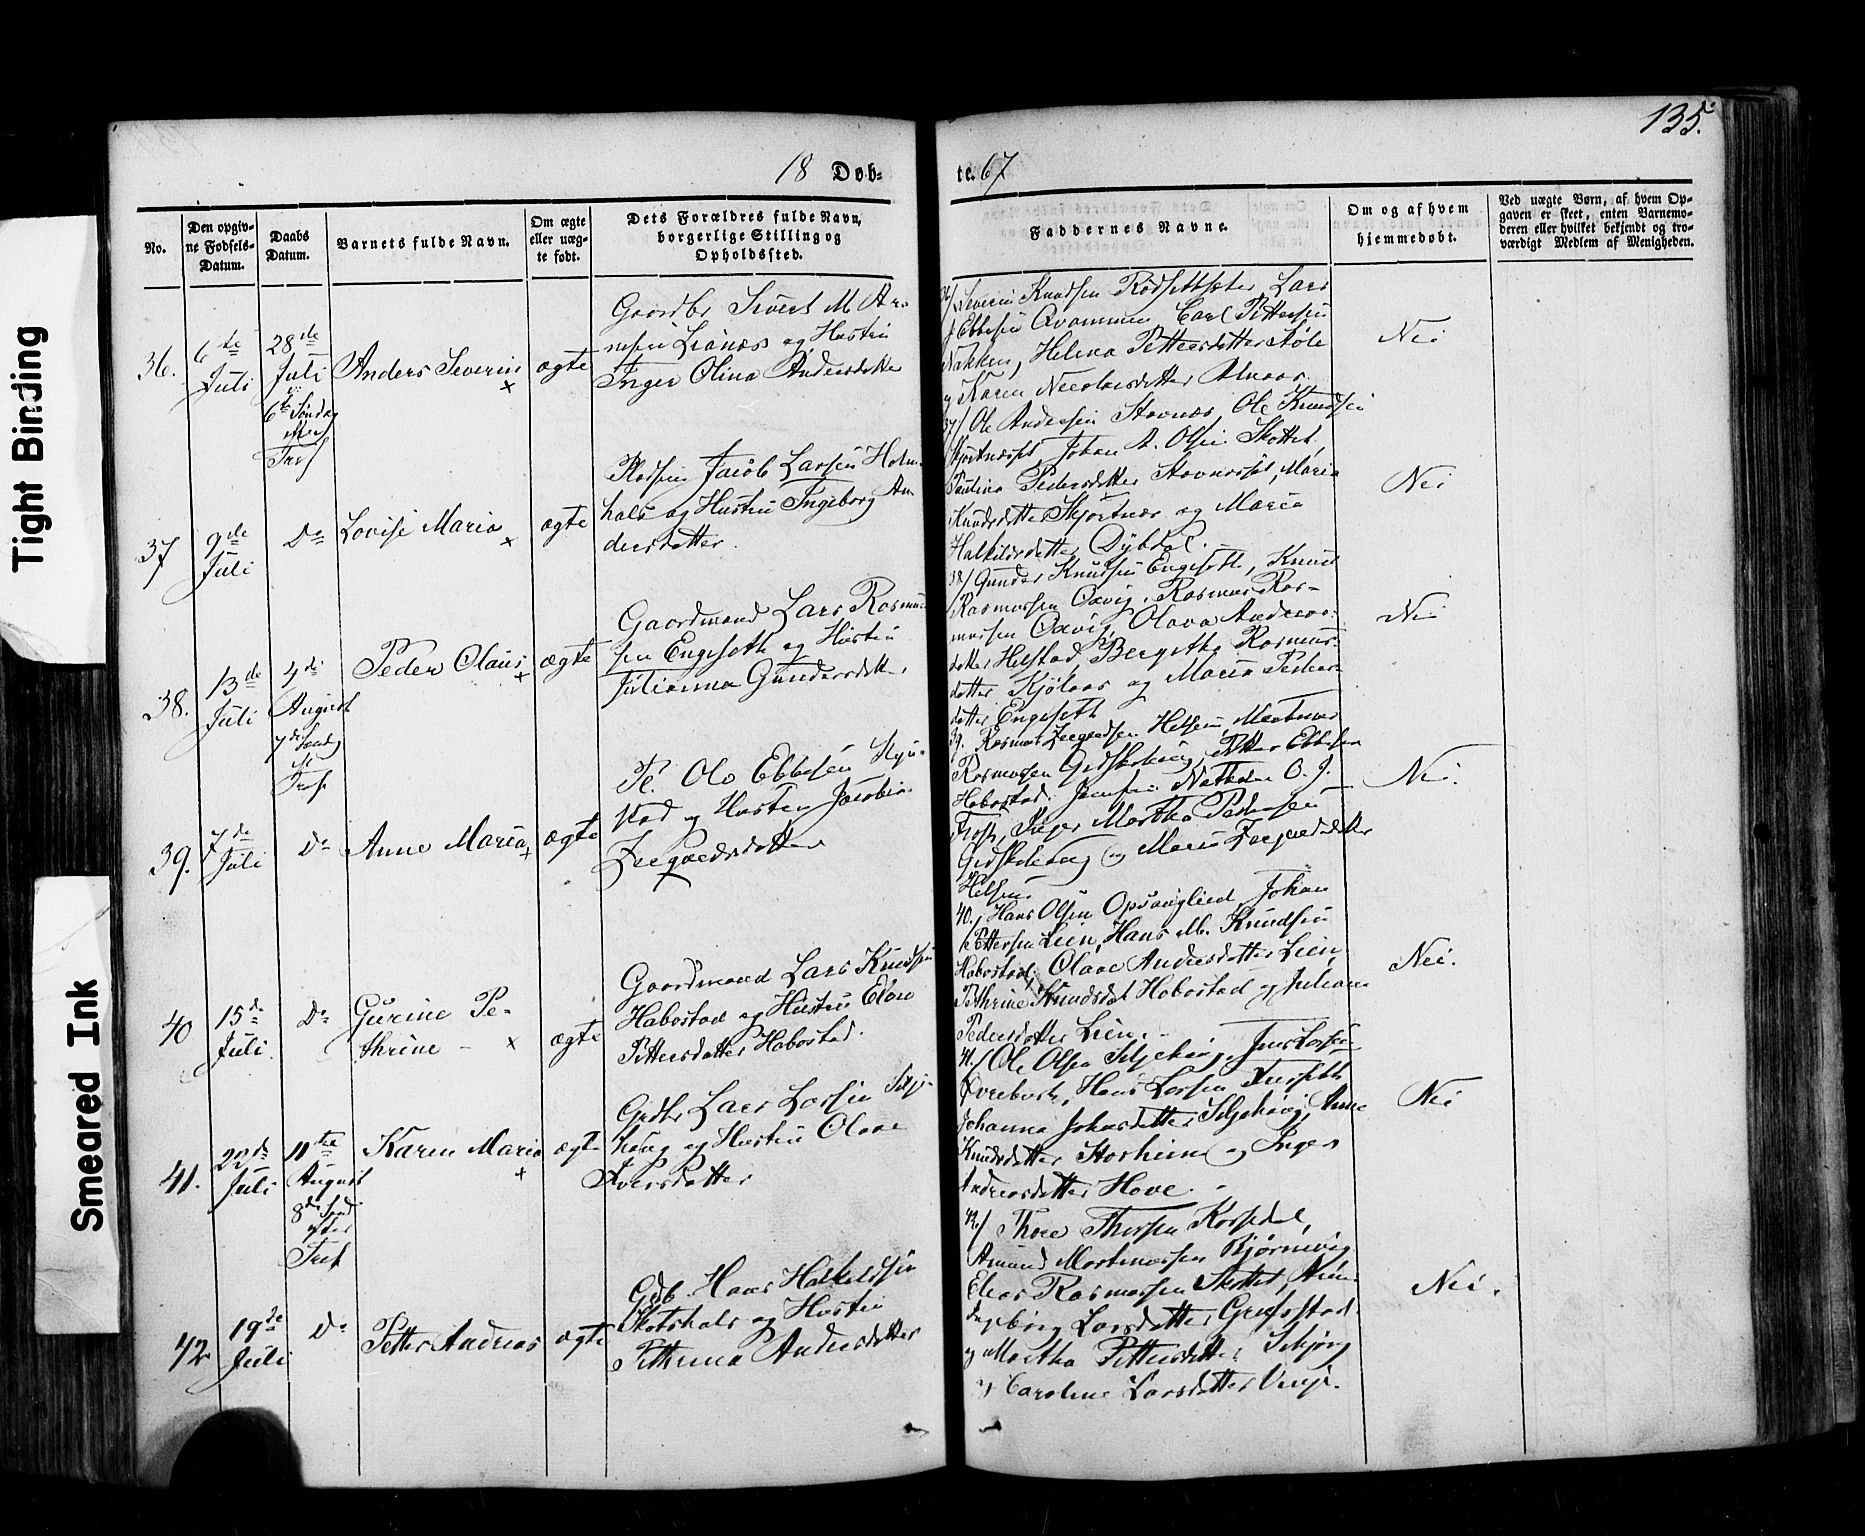 135.
18 Døb-
te. 67
No.
Den opgiv-
ne Fødsels-
Datum.
Daabs
Datum.
Barnets fulde Navn.
Om ægte
eller uæg-
te født.
Dets Forældres fulde Navn,
borgerlige Stilling og
Opholdssted.
Faddernes Navne.
Om og af hvem
hjemmedøbt.
Ved uægte Børn, af hvem Op-
gaven er skeet, enten Barnemo-
deren eller hvilket bekjendt og tro-
værdigt Medlem af Menigheden.
36.
6te
Juli
28de
Juli
6te Søndag
efter
Tref
Anders Severin
x
ægte
Gaardbr Sivert M. Ar-
nesen Lianæs og Hustru
Inger Olina Andersdatter
36/ Severin Knudsen Rødsetsæter, Lars
Ebbesen Qvammen Carl Pettersen
Nakken, Helena Pettersdatter Støle
og Karen Nicolaisdatter Alnaas.
Nei
37
9de
Juli
Do
Lovise Maria
x
ægte
Pladsm Jacob Larsen Holm-
hals og Hustru Ingeborg An-
dersdatter.
37/ Ole Andersen Stavnæs, Ole Knudsen
Johan A. Olsen Skottet
Paulina Pedersdatter Stavnæspl, Maria
Knudsdatter Skjortnæs og Maria
Halkildsdatter Dybdal.
Nei
38.
13de
Juli
4de
August
7de Sønd
e.
Tref.
Peder Olaus
x
ægte
Gaardmand Lars Rasmus-
sen Engeseth og Hustru
Julianna Gundersdatter
38/ Gunder Knudsen Engeseth, Knud
Rasmussen Oxvig, Rasmus Ras-
mussen Oxvig, Olava Andreas-
datter Helstad, Bergithe Rasmus-
datter Kjølaas og Maria Peder-
datter Engeseth
Nei
39.
7de
Juli
Do
Anne Maria
x
ægte
Pl. Ole Ebbesen
stad og Hustru Jacobina
Zeegaardsdatter
39. Rasmus Zeegaardsen Helsem, Martinus
Rasmussen Gidskehaug, Petter Ebbesen
Habostad, Nakken O. J.
Frost, Inger Martha Pedersen
Gidskehaug og Maria Zeegaardsdatter
Helsem
Nei.
40
15de
Juli.
Do
Gurine Pe-
thrine - x
ægte
Gaardmand Lars Knudsen
Habostad og Hustru Elane
Pettersdatter Habostad.
40. Hans Olsen Opsanglied, Johan
Pettersen Lien, Hans M. Knudsen
Habostad, Olave Andersdatter Lien
Pethrine Knudsdat Habostad og Juliane
Pedersdatter Lien.
Nei.
41.
22de
Juli
11te
August
8de Sønd
efter
Tref
Karen Maria
x
ægte
Grdbr Lars Larsen Silje-
haug og Hustru Olave
Iversdatter
41/ Ole Olsen Siljehaug, Jens Larsen
Øvrebust, Hans Larsen
Johanna Johnsdatter Siljehaug, Anne
Knudsdatter Storheim og Inger
Andreasdatter Hove.
Nei
42
19de
Juli
Do
Petter Andreas
ægte
Gdb. Hans Halkildsen
Skotshals og Hustru
Pethrina Andersdatter
42/ Thore Thorsen Korsedal,
Amund Martinussen Bjørnevig
Elias Rasmussen Skottet,
Ingeborg Larsdatter Grøfsstad
og Martha Pettersdatter
og Caroline Larsdatter
Nei.
Tight Binding
Smeared Ink